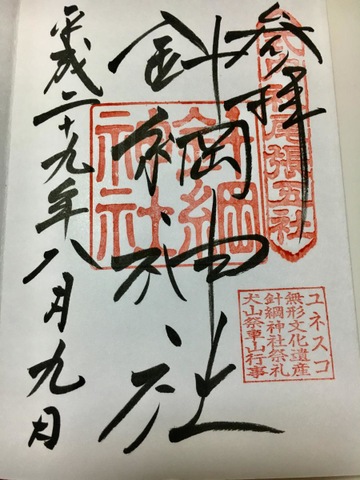 参拝
尾張五社
針綱神社
針綱
神社
平成二十九年八月九日
ユネスコ
無形文化遺産
針綱神社祭礼
犬山祭車山行事